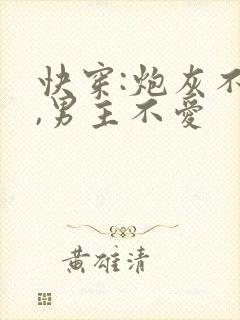 快穿:炮灰不
,男主不爱
黄雄清